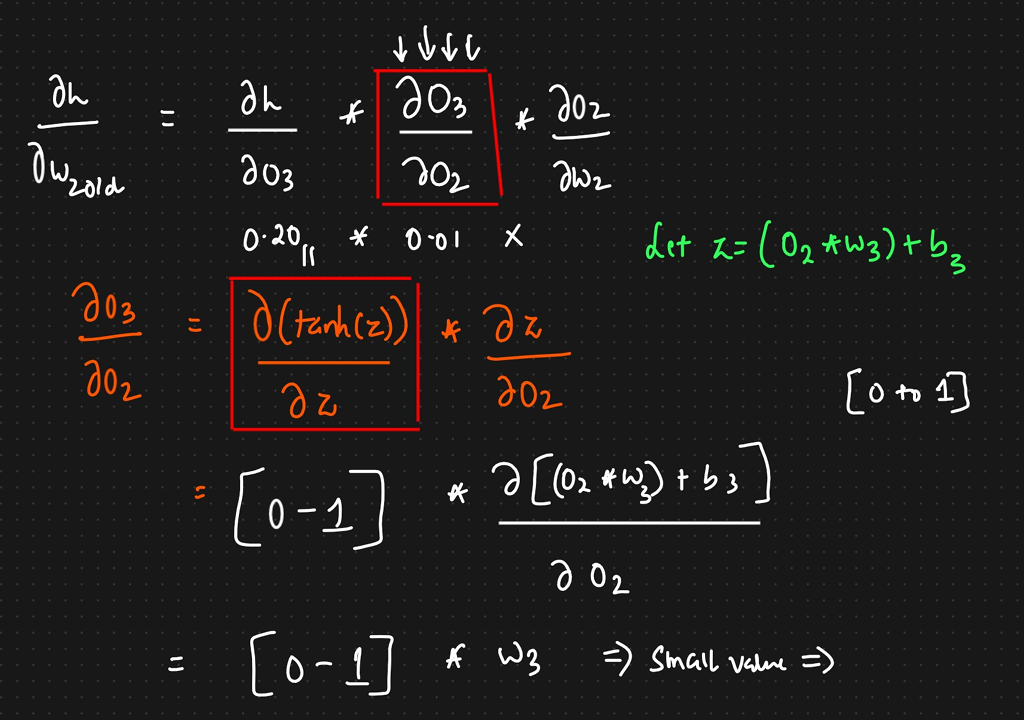 ↓ ↓ ↓ ↓
∂h/∂w₂old = ∂h/∂O₃ * ∂O₃/∂O₂ * ∂O₂/∂w₂
0.20 * 0.01 ×
Let z = (O₂ * w₃) + b₃
∂O₃/∂O₂ = ∂(tanh(z))/∂z * ∂z/∂O₂
[0 to 1]
= [0 - 1] * ∂[(O₂ * w₃) + b₃]/∂O₂
= [0 - 1] * w₃ ⇒ small value ⇒